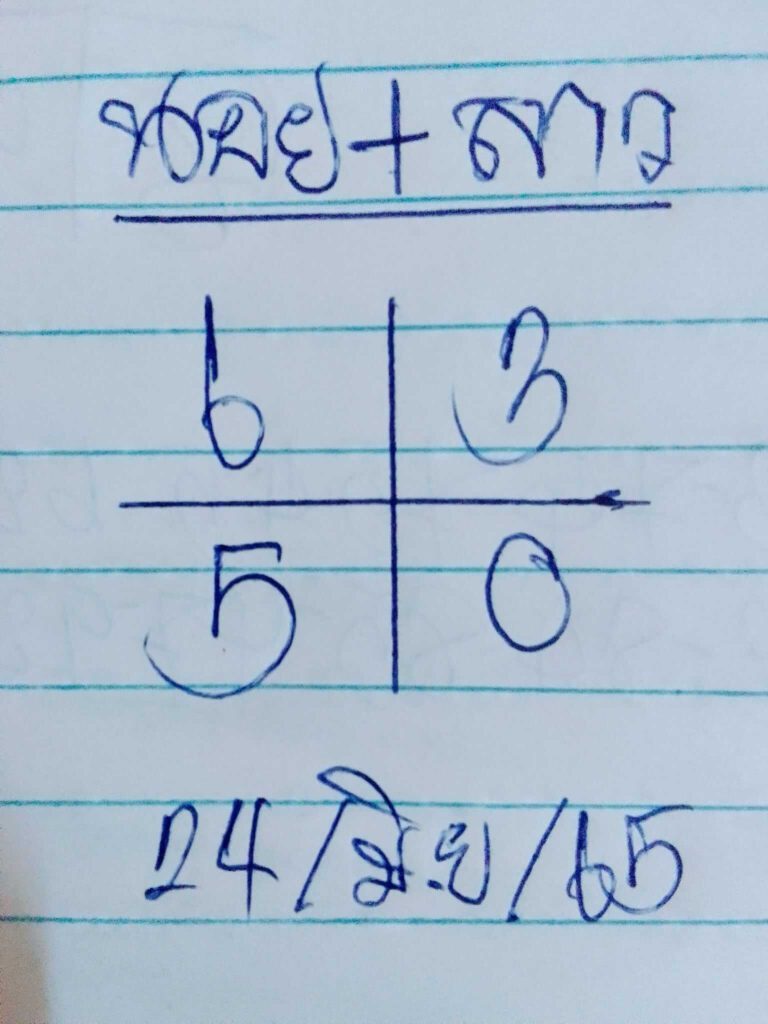 นอย+ลาว
6 3
5 0
24/มิ.ย/65